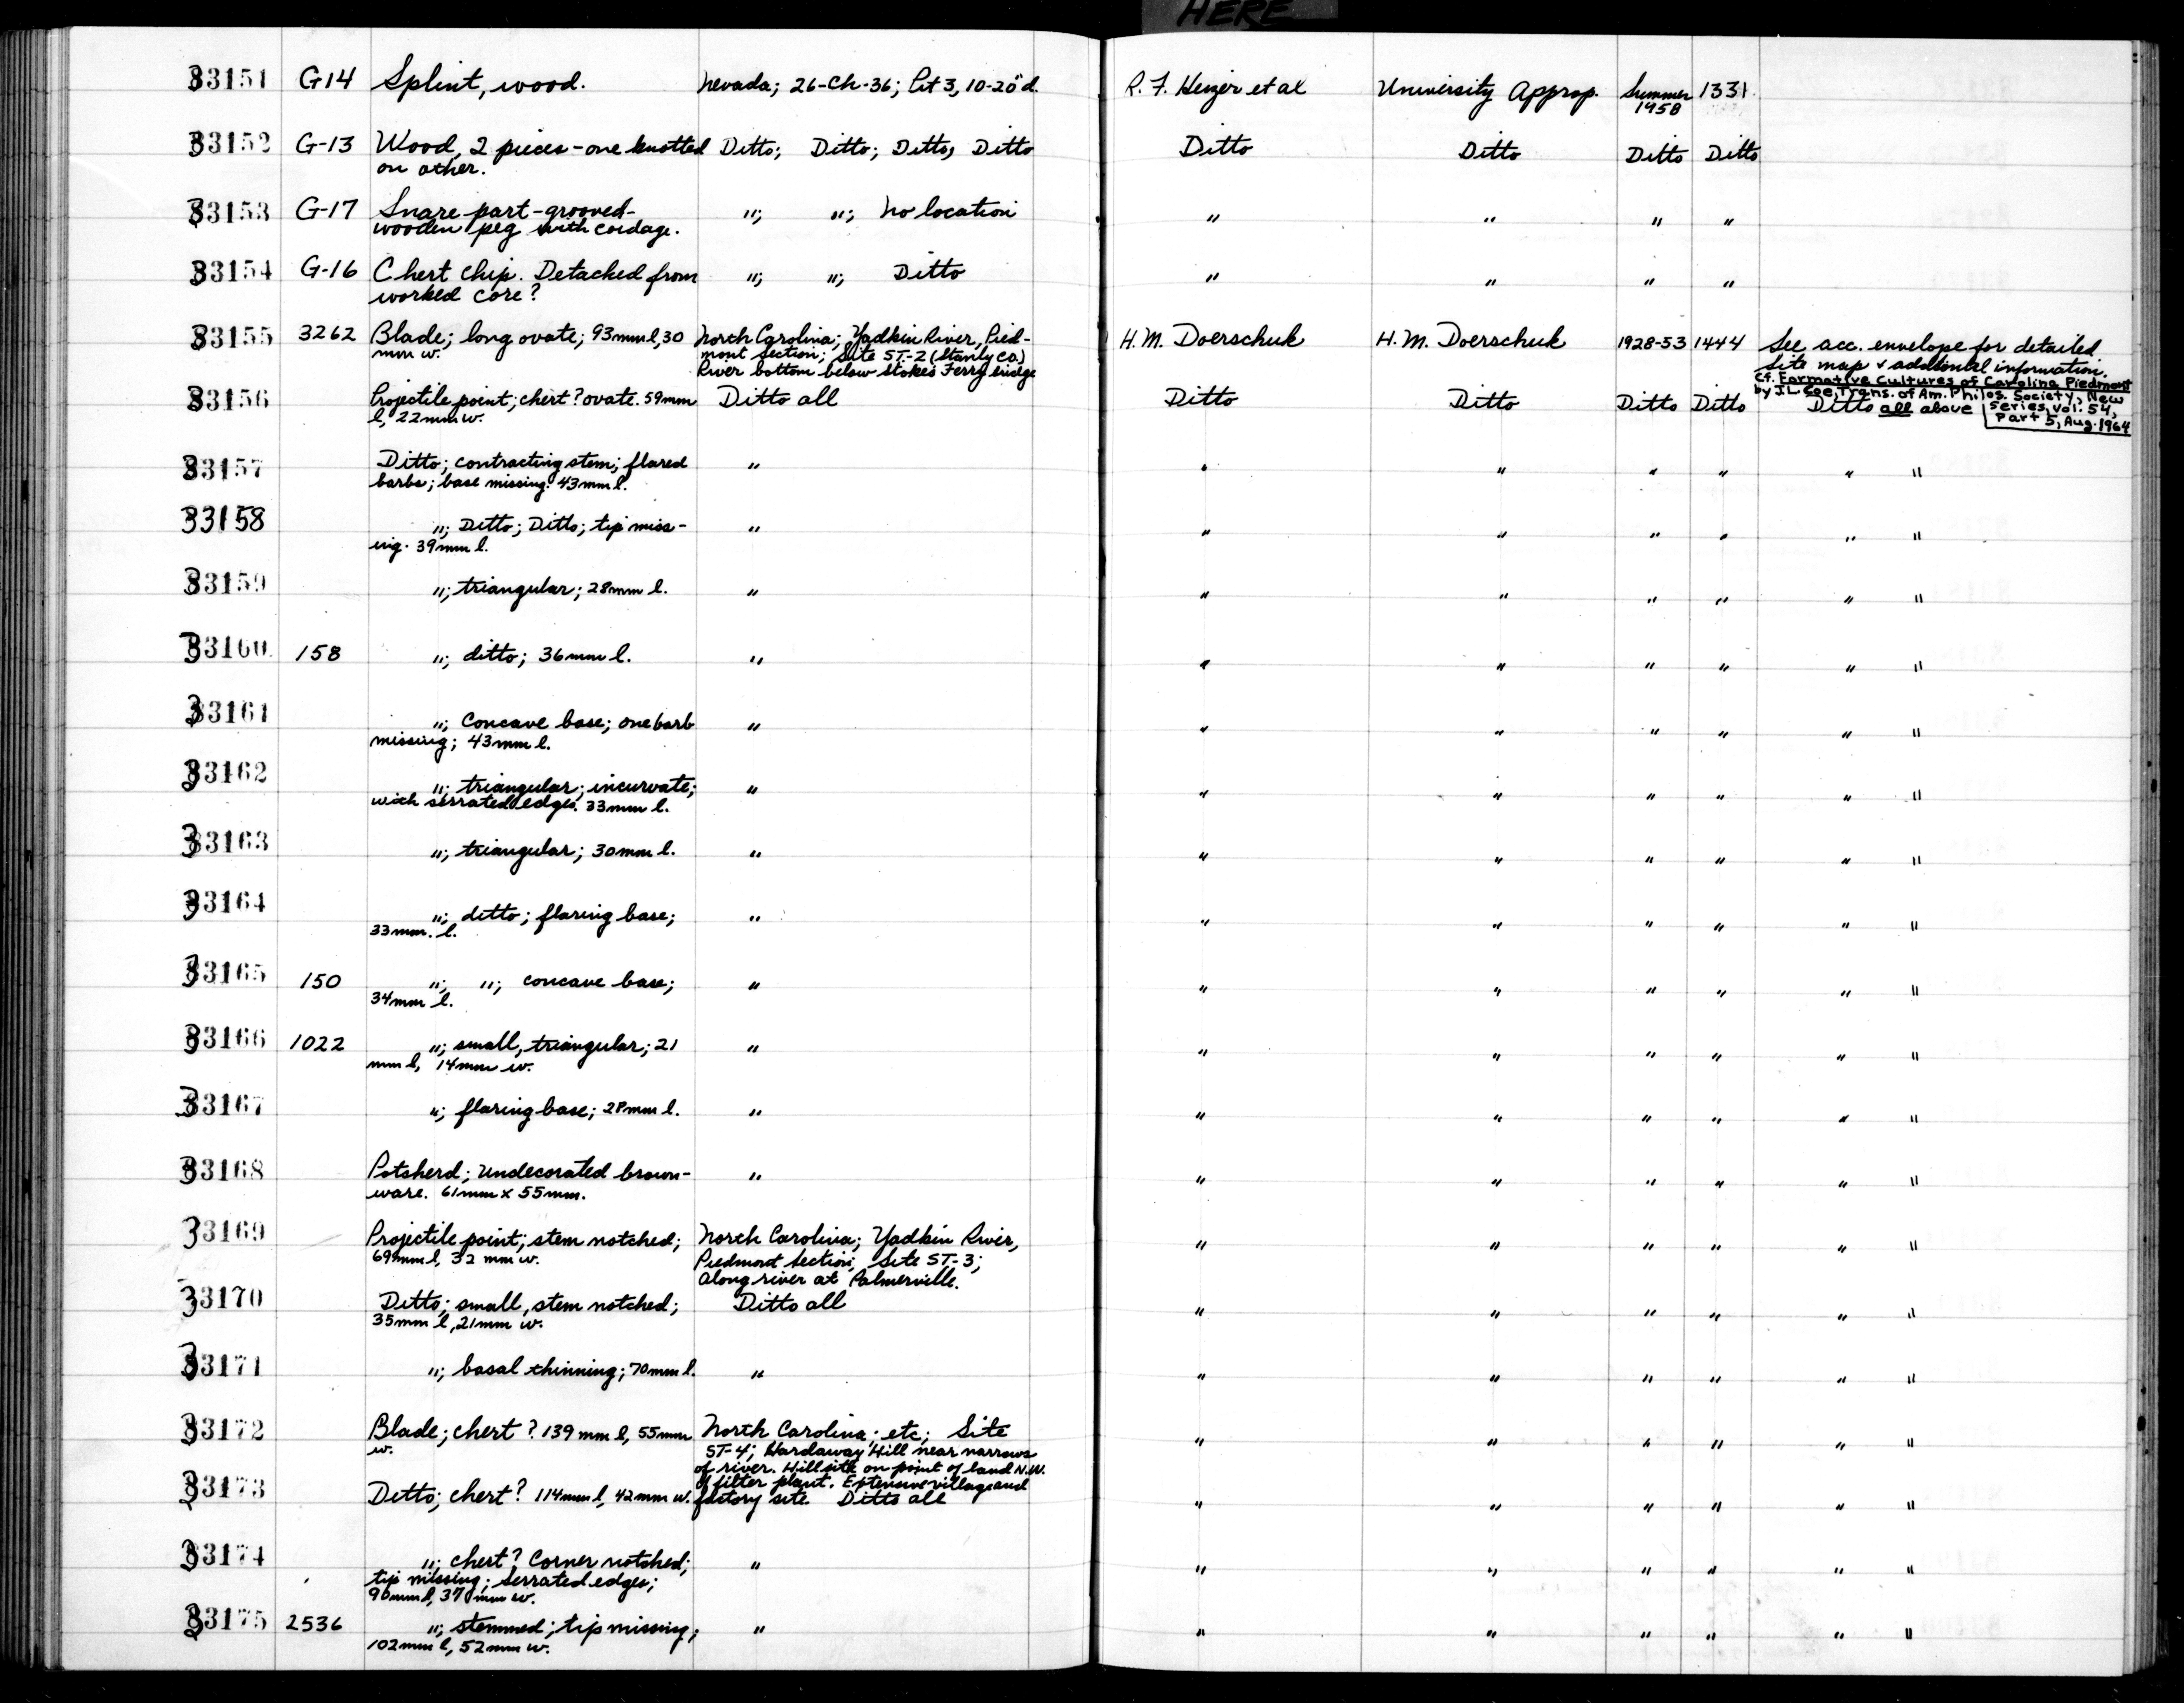 HERE
33151 G14 Splint, wood. Nevada; 26-Ch-36; Pit 3, 10-20"d. R. F. Heizer et al University Approp. Summer 1331
1958
33152 G-13 Wood, 2 pieces - one knotted Ditto; Ditto; Ditto; Ditto Ditto Ditto Ditto Ditto
on other.
33153 G-17 Snare part - grooved - "; "; No location " " " "
wooden peg with cordage.
33154 G-16 Chert chip. Detached from "; "; Ditto " " " "
worked core?
33155 3262 Blade; long ovate; 93mm l, 30 North Carolina; Yadkin River, Pied- H.M. Doerschuk H.M. Doerschuk 1928-53 1444 See acc. envelope for detailed
mm w. mont Section; Site ST-2 (Stanly Co.) site map & additional information.
River bottom below Stokes Ferry bridge Cf. Formative Cultures of Carolina Piedmont
by J.L. Coe, Trans. of Am. Philos. Society, New
Series, Vol. 54,
Part 5, Aug. 1964
33156 Projectile point; chert? ovate. 59mm Ditto all Ditto Ditto Ditto Ditto Ditto all above
l, 22mm w.
33157 Ditto; contracting stem; flared " " " " " " "
barbs; base missing. 43mm l.
33158 "; Ditto; Ditto; tip miss- " " " " " " "
ing. 39mm l.
33159 "; triangular; 28mm l. " " " " " " "
33160 158 "; ditto; 36mm l. " " " " " " "
33161 "; Concave base; one barb " " " " " " "
missing; 43mm l.
33162 "; triangular; incurvate; " " " " " " "
with serrated edges. 33mm l.
33163 "; triangular; 30mm l. " " " " " " "
33164 "; ditto; flaring base; " " " " " " "
33mm. l.
33165 150 "; "; concave base; " " " " " " "
34mm l.
33166 1022 "; small, triangular; 21 " " " " " " "
mm l, 14mm w.
33167 "; flaring base; 28mm l. " " " " " " "
33168 Potsherd; Undecorated brown- " " " " " " "
ware. 61mm x 55mm.
33169 Projectile point; stem notched; North Carolina; Yadkin River, " " " " " "
69mm l, 32 mm w. Piedmont Section; Site ST-3;
Along river at Palmerville.
33170 Ditto; small, stem notched; Ditto all " " " " " "
35mm l, 21mm w.
33171 "; basal thinning; 70mm l. " " " " " " "
33172 Blade; chert? 139 mm l, 55mm North Carolina; etc; Site " " " " " "
w. ST-4; Hardaway Hill near narrows
of river. Hillsite on point of land N.W.
of filter plant. Extensive village and
33173 Ditto; chert? 114mm l, 42mm w. factory site. Ditto all " " " " " "
33174 "; chert? Corner notched; " " " " " " "
tip missing; serrated edges;
90mm l, 37mm w.
33175 2536 "; stemmed; tip missing; " " " " " " "
102mm l, 52mm w.